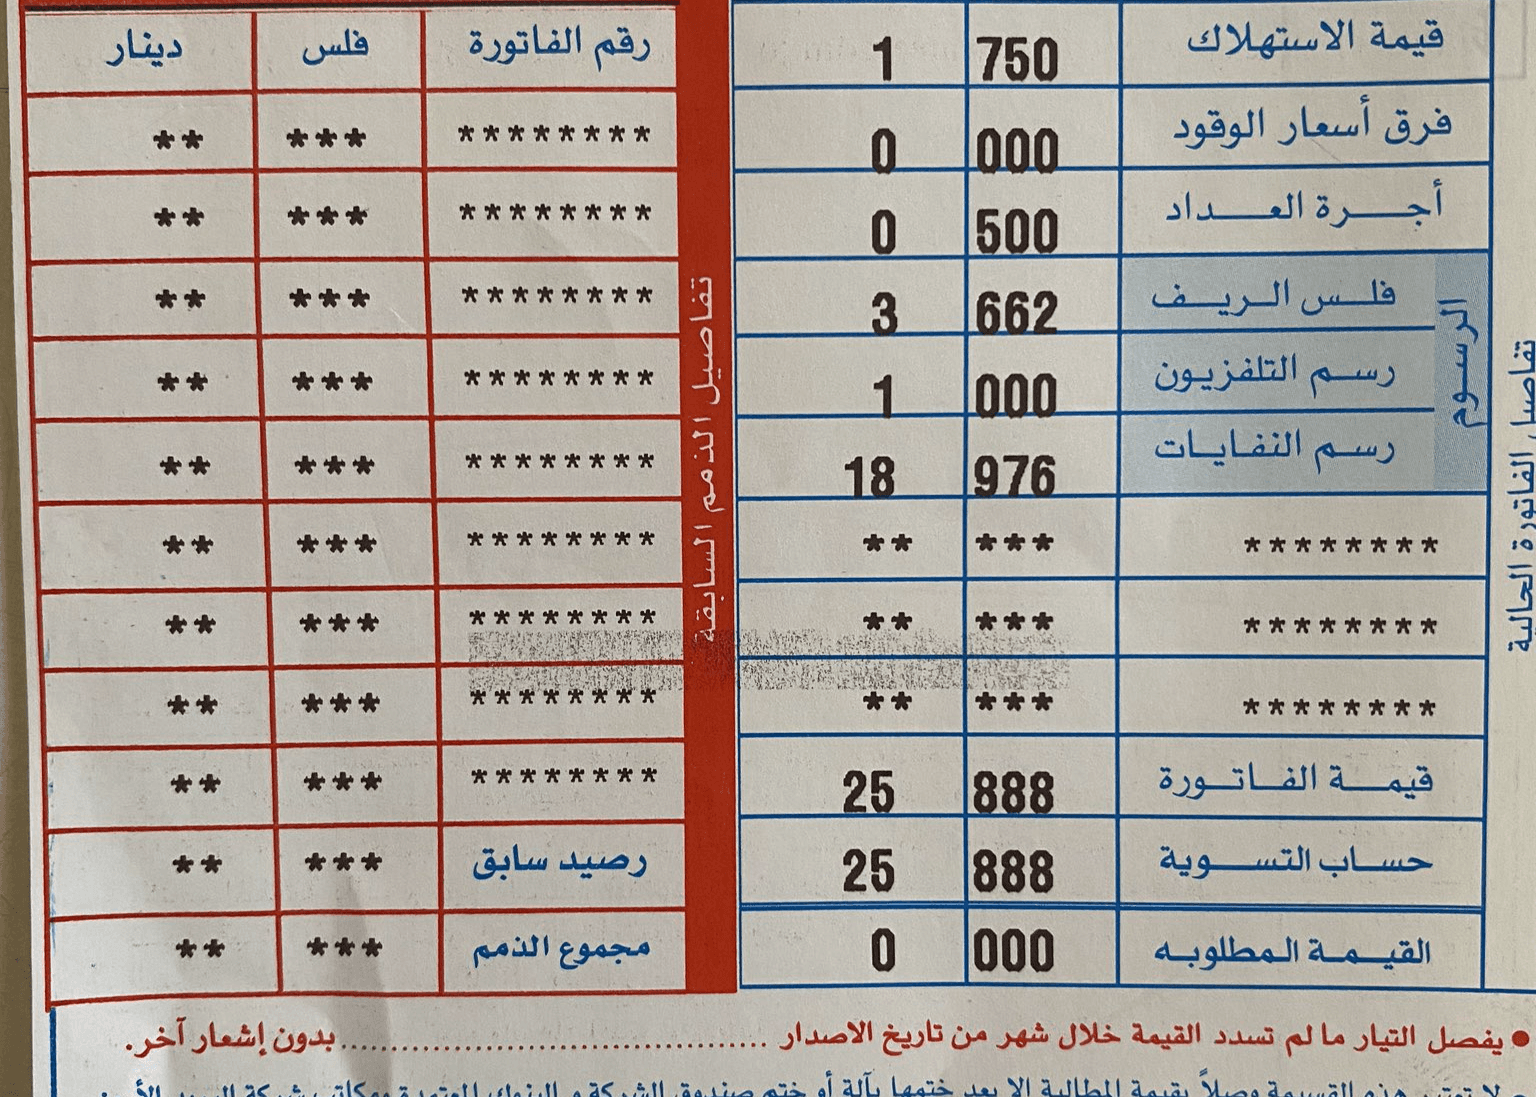 قيمة الاستهلاك 750 1
فرق أسعار الوقود 000 0
أجرة العداد 500 0
فلس الريف 662 3
رسم التلفزيون 000 1
رسم النفايات 976 18
******** *** **
******** *** **
******** *** **
قيمة الفاتورة 888 25
حساب التسوية 888 25
القيمة المطلوبه 000 0
الرسوم
تفاصيل الفاتورة الحالية
تفاصيل الذمم السابقة
رقم الفاتورة فلس دينار
******** *** **
******** *** **
******** *** **
******** *** **
******** *** **
******** *** **
******** *** **
******** *** **
******** *** **
رصيد سابق *** **
مجموع الذمم *** **
● يفصل التيار ما لم تسدد القيمة خلال شهر من تاريخ الاصدار ........................................ بدون إشعار آخر.
لا تعتبر هذه القسيمة وصلاً بقيمة المطالبة إلا بعد ختمها بآلة أو ختم صندوق الشركة و البنوك المعتمدة ومكاتب شركة البريد